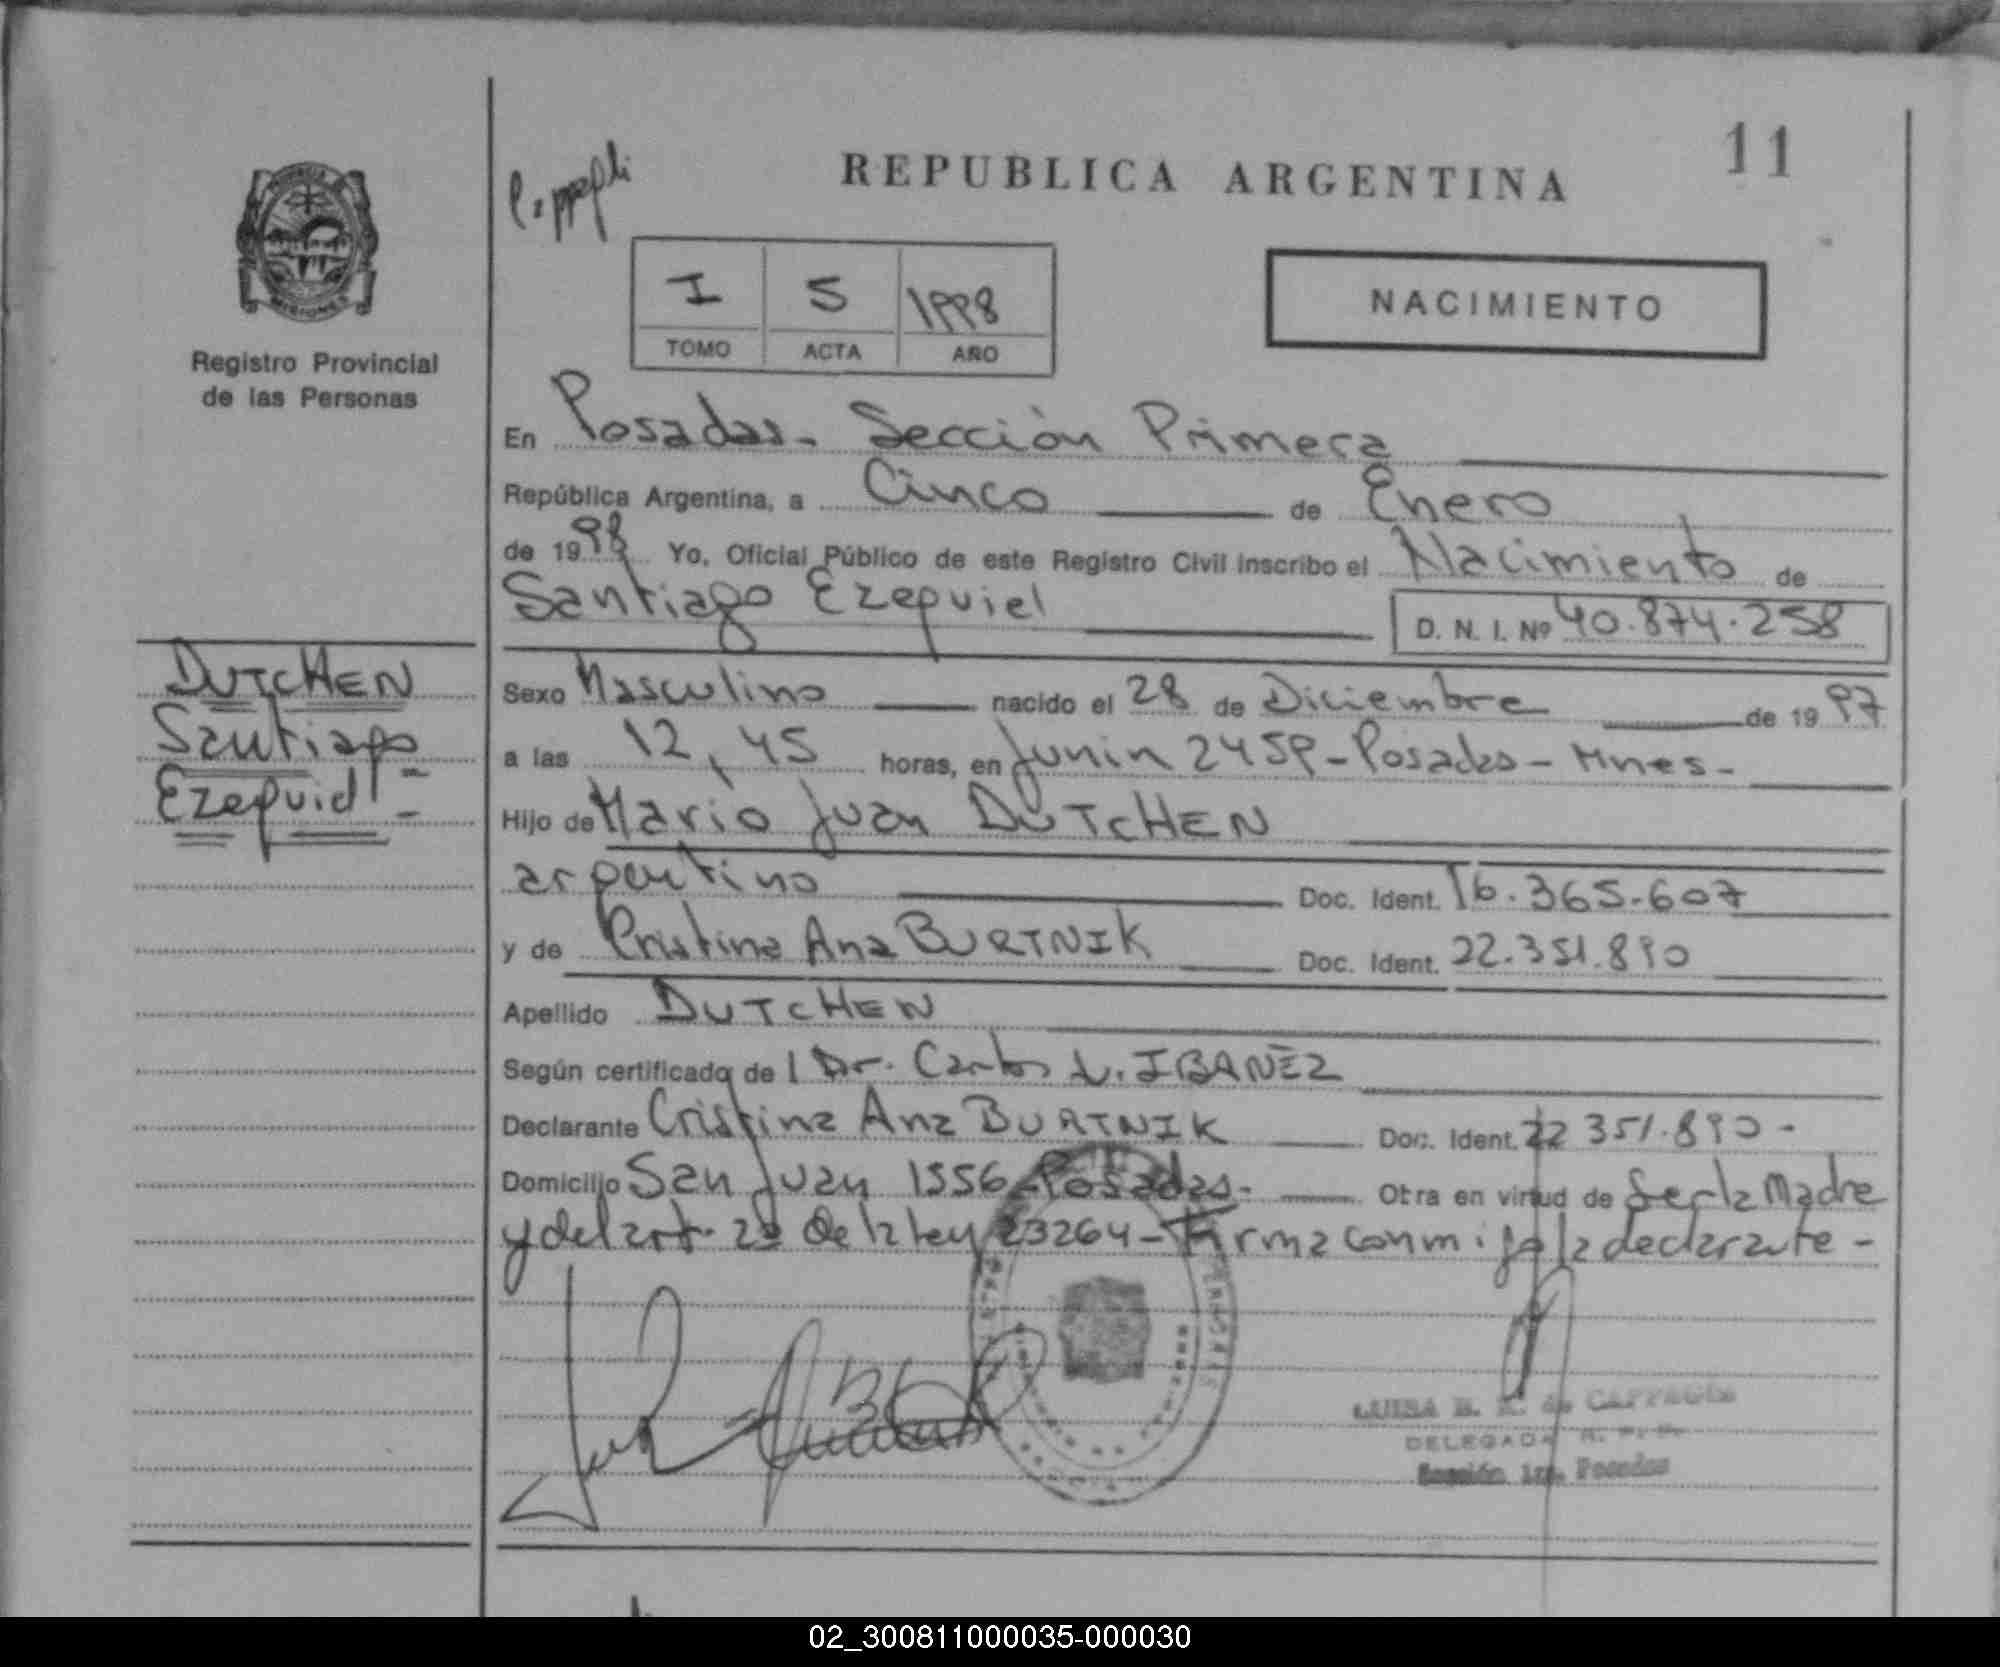 REPUBLICA ARGENTINA
11
I
5
1998
TOMO
ACTA
AÑO
NACIMIENTO
MISIONES
Registro Provincial
de las Personas
En Posadas - Sección Primera
República Argentina, a Cinco de Enero
de 1998 Yo, Oficial Público de este Registro Civil inscribo el Nacimiento de
Santiago Ezequiel
D. N. I. Nº 40.874.258
DUTCHEN
Santiago
Ezequiel -
Sexo Masculino nacido el 28 de Diciembre de 1997
a las 12,45 horas, en Junin 2459 - Posadas - Mnes -
Hijo de Mario Juan DUTCHEN
argentino Doc. Ident. 16.365.607
y de Cristina Ana BURTNIK Doc. Ident. 22.351.890
Apellido DUTCHEN
Según certificado de l Dr. Carlos L. IBAÑEZ
Declarante Cristina Ana BURTNIK Doc. Ident. 22 351.890 -
Domicilio San Juan 1556 - Posadas - Obra en virtud de Ser la Madre
y del art. 2º de la ley 23264 - Firma conmigo la declarante -
LUISA de CAPPAGLI
DELEGADA R. P. P.
Sección 1ra. Posadas
02_300811000035-000030